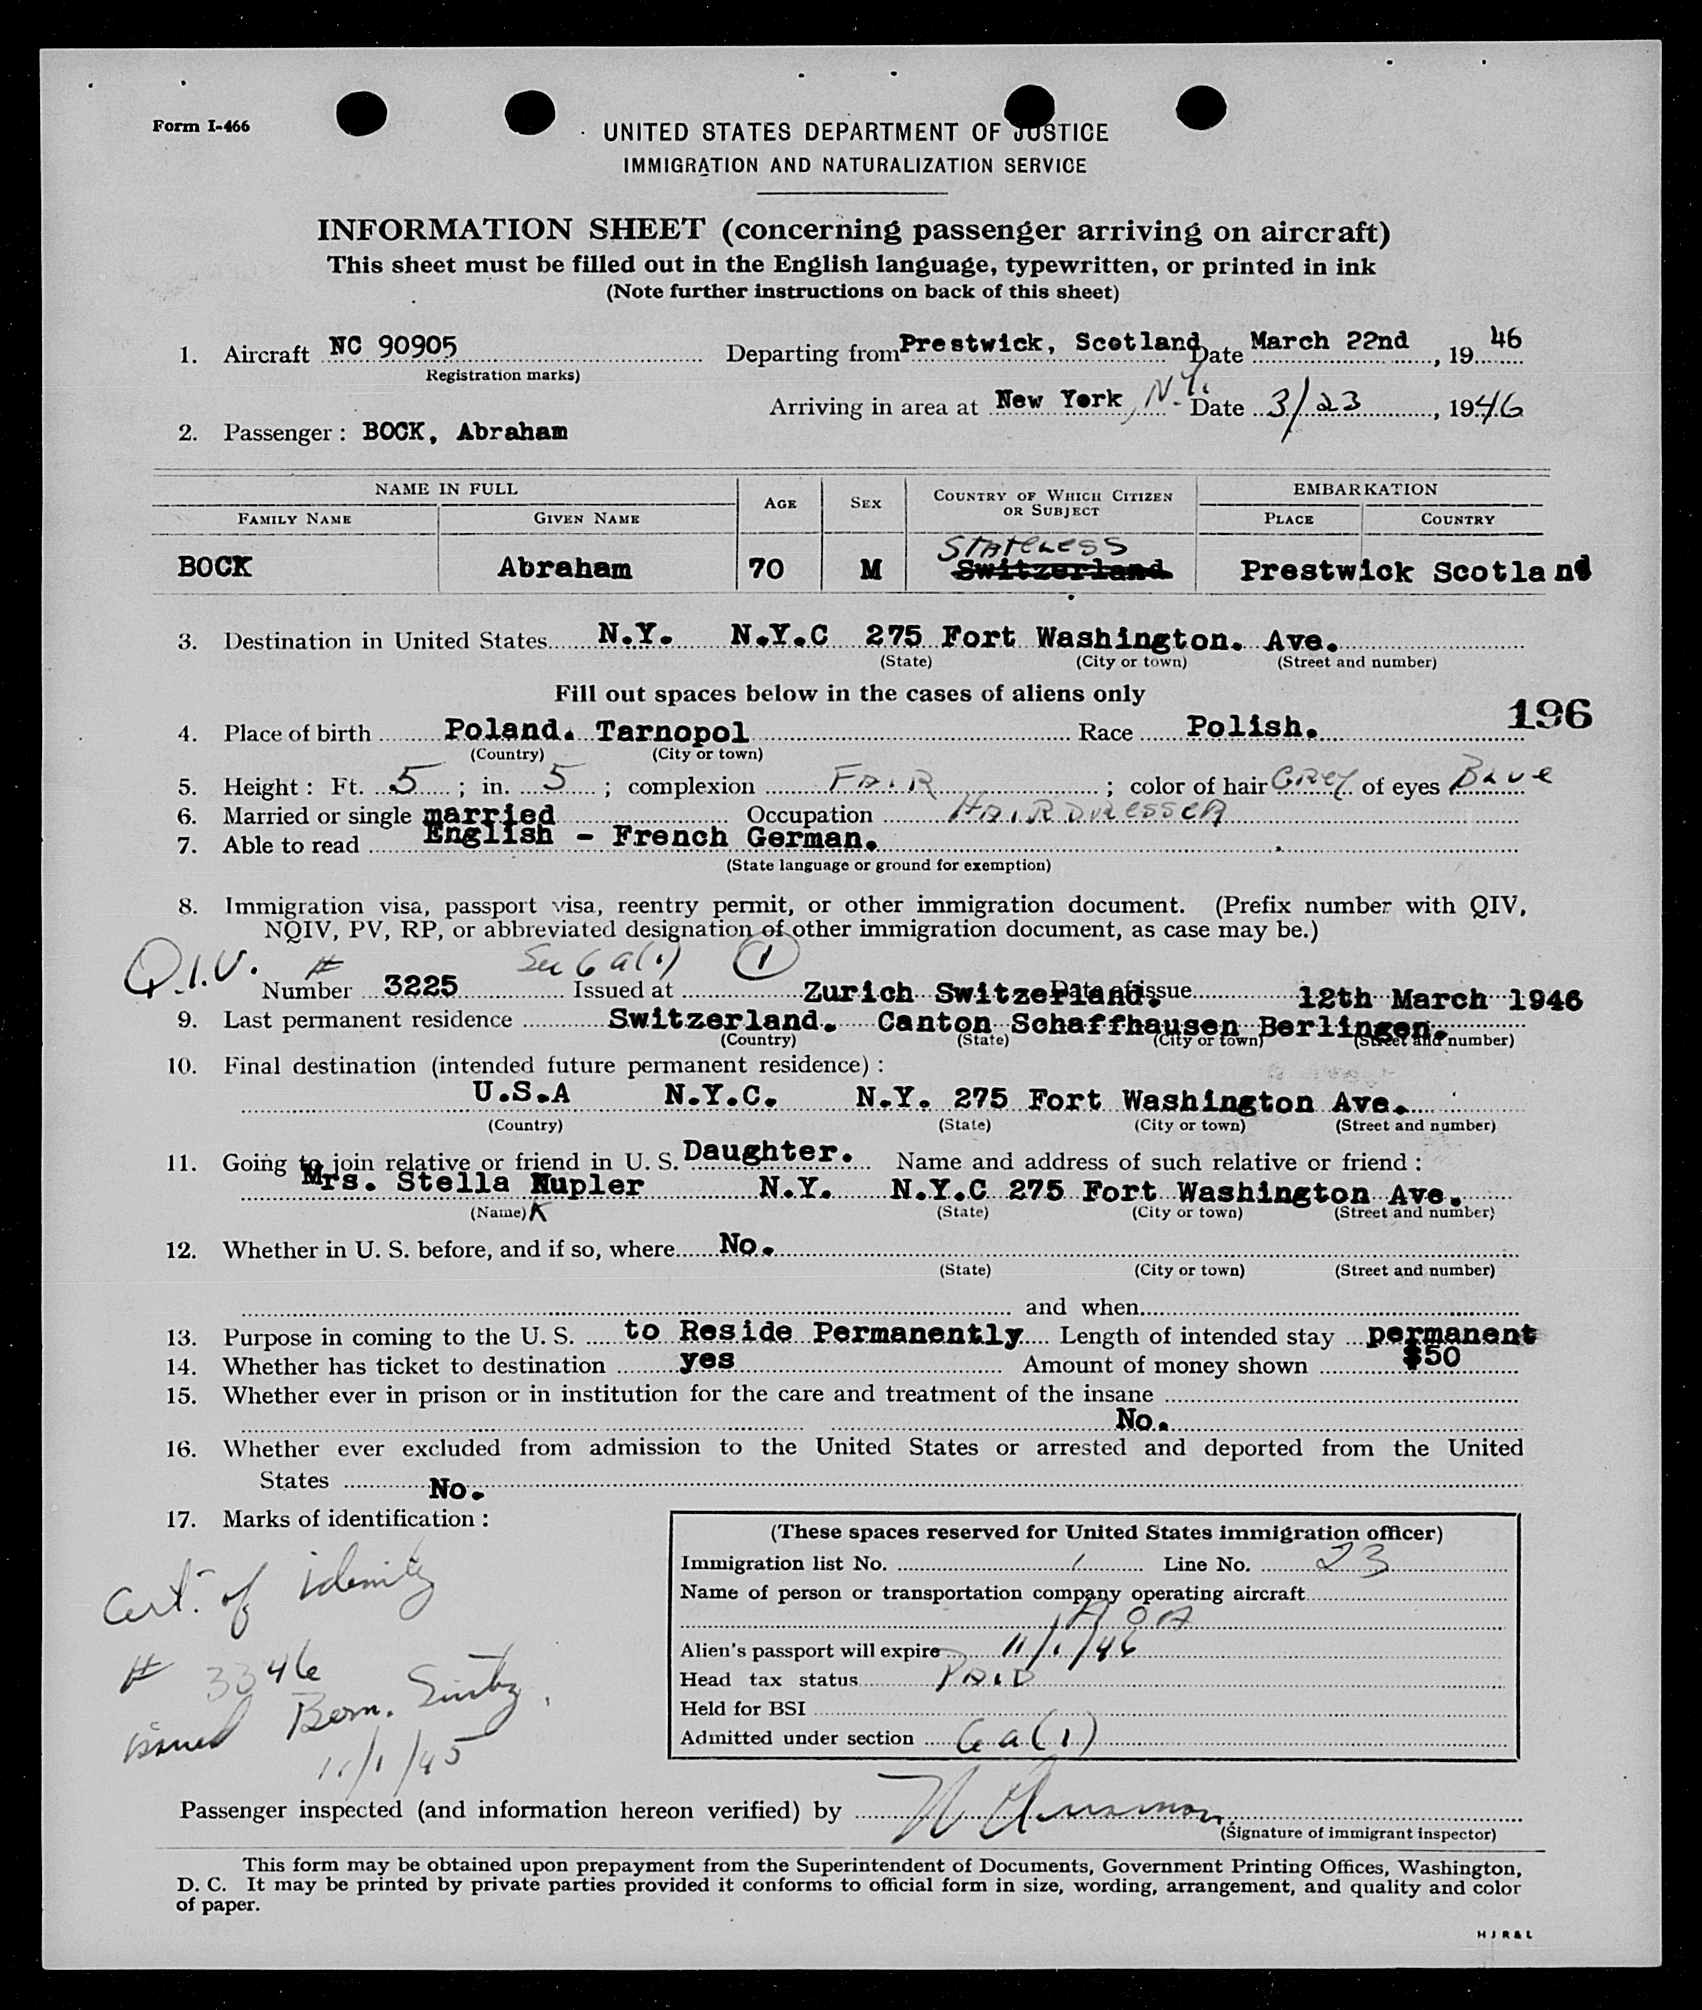 Form I-466
UNITED STATES DEPARTMENT OF JUSTICE
IMMIGRATION AND NATURALIZATION SERVICE
INFORMATION SHEET (concerning passenger arriving on aircraft)
This sheet must be filled out in the English language, typewritten, or printed in ink
(Note further instructions on back of this sheet)
1. Aircraft NC 90905 Departing from Prestwick, Scotland Date March 22nd, 1946
Registration marks)
Arriving in area at New York, N.Y. Date 3/23, 1946
2. Passenger: BOCK, Abraham
NAME IN FULL AGE SEX COUNTRY OF WHICH CITIZEN OR SUBJECT EMBARKATION
FAMILY NAME GIVEN NAME PLACE COUNTRY
STATELESS
BOCK Abraham 70 M Switzerland Prestwick Scotland
3. Destination in United States N.Y. N.Y.C 275 Fort Washington. Ave.
(State) (City or town) (Street and number)
Fill out spaces below in the cases of aliens only
196
4. Place of birth Poland. Tarnopol Race Polish.
(Country) (City or town)
5. Height: Ft. 5; in. 5; complexion FAIR; color of hair Grey of eyes Blue
6. Married or single married Occupation HAIRDRESSER
7. Able to read English - French German.
(State language or ground for exemption)
8. Immigration visa, passport visa, reentry permit, or other immigration document. (Prefix number with QIV,
NQIV, PV, RP, or abbreviated designation of other immigration document, as case may be.)
Q.I.V. # Sec 6 a(1) 1
Number 3225 Issued at Zurich Switzerland. Date of issue 12th March 1946
9. Last permanent residence Switzerland. Canton Schaffhausen Berlingen.
(Country) (State) (City or town) (Street and number)
10. Final destination (intended future permanent residence):
U.S.A N.Y.C. N.Y. 275 Fort Washington Ave.
(Country) (State) (City or town) (Street and number)
11. Going to join relative or friend in U. S. Daughter. Name and address of such relative or friend:
Mrs. Stella Nupler N.Y. N.Y.C 275 Fort Washington Ave.
(Name) K (State) (City or town) (Street and number)
12. Whether in U. S. before, and if so, where No.
(State) (City or town) (Street and number)
and when
13. Purpose in coming to the U. S. to Reside Permanently Length of intended stay permanent
14. Whether has ticket to destination yes Amount of money shown $50
15. Whether ever in prison or in institution for the care and treatment of the insane
No.
16. Whether ever excluded from admission to the United States or arrested and deported from the United
States No.
17. Marks of identification:
Cert. of idenity
# 3346
issued Bern. Switz.
11/1/45
(These spaces reserved for United States immigration officer)
Immigration list No. 1 Line No. 23
Name of person or transportation company operating aircraft
A O A
Alien's passport will expire 11/1/46
Head tax status PAID
Held for BSI
Admitted under section 6 a(1)
Passenger inspected (and information hereon verified) by
(Signature of immigrant inspector)
This form may be obtained upon prepayment from the Superintendent of Documents, Government Printing Offices, Washington,
D. C. It may be printed by private parties provided it conforms to official form in size, wording, arrangement, and quality and color
of paper.
HJR&L